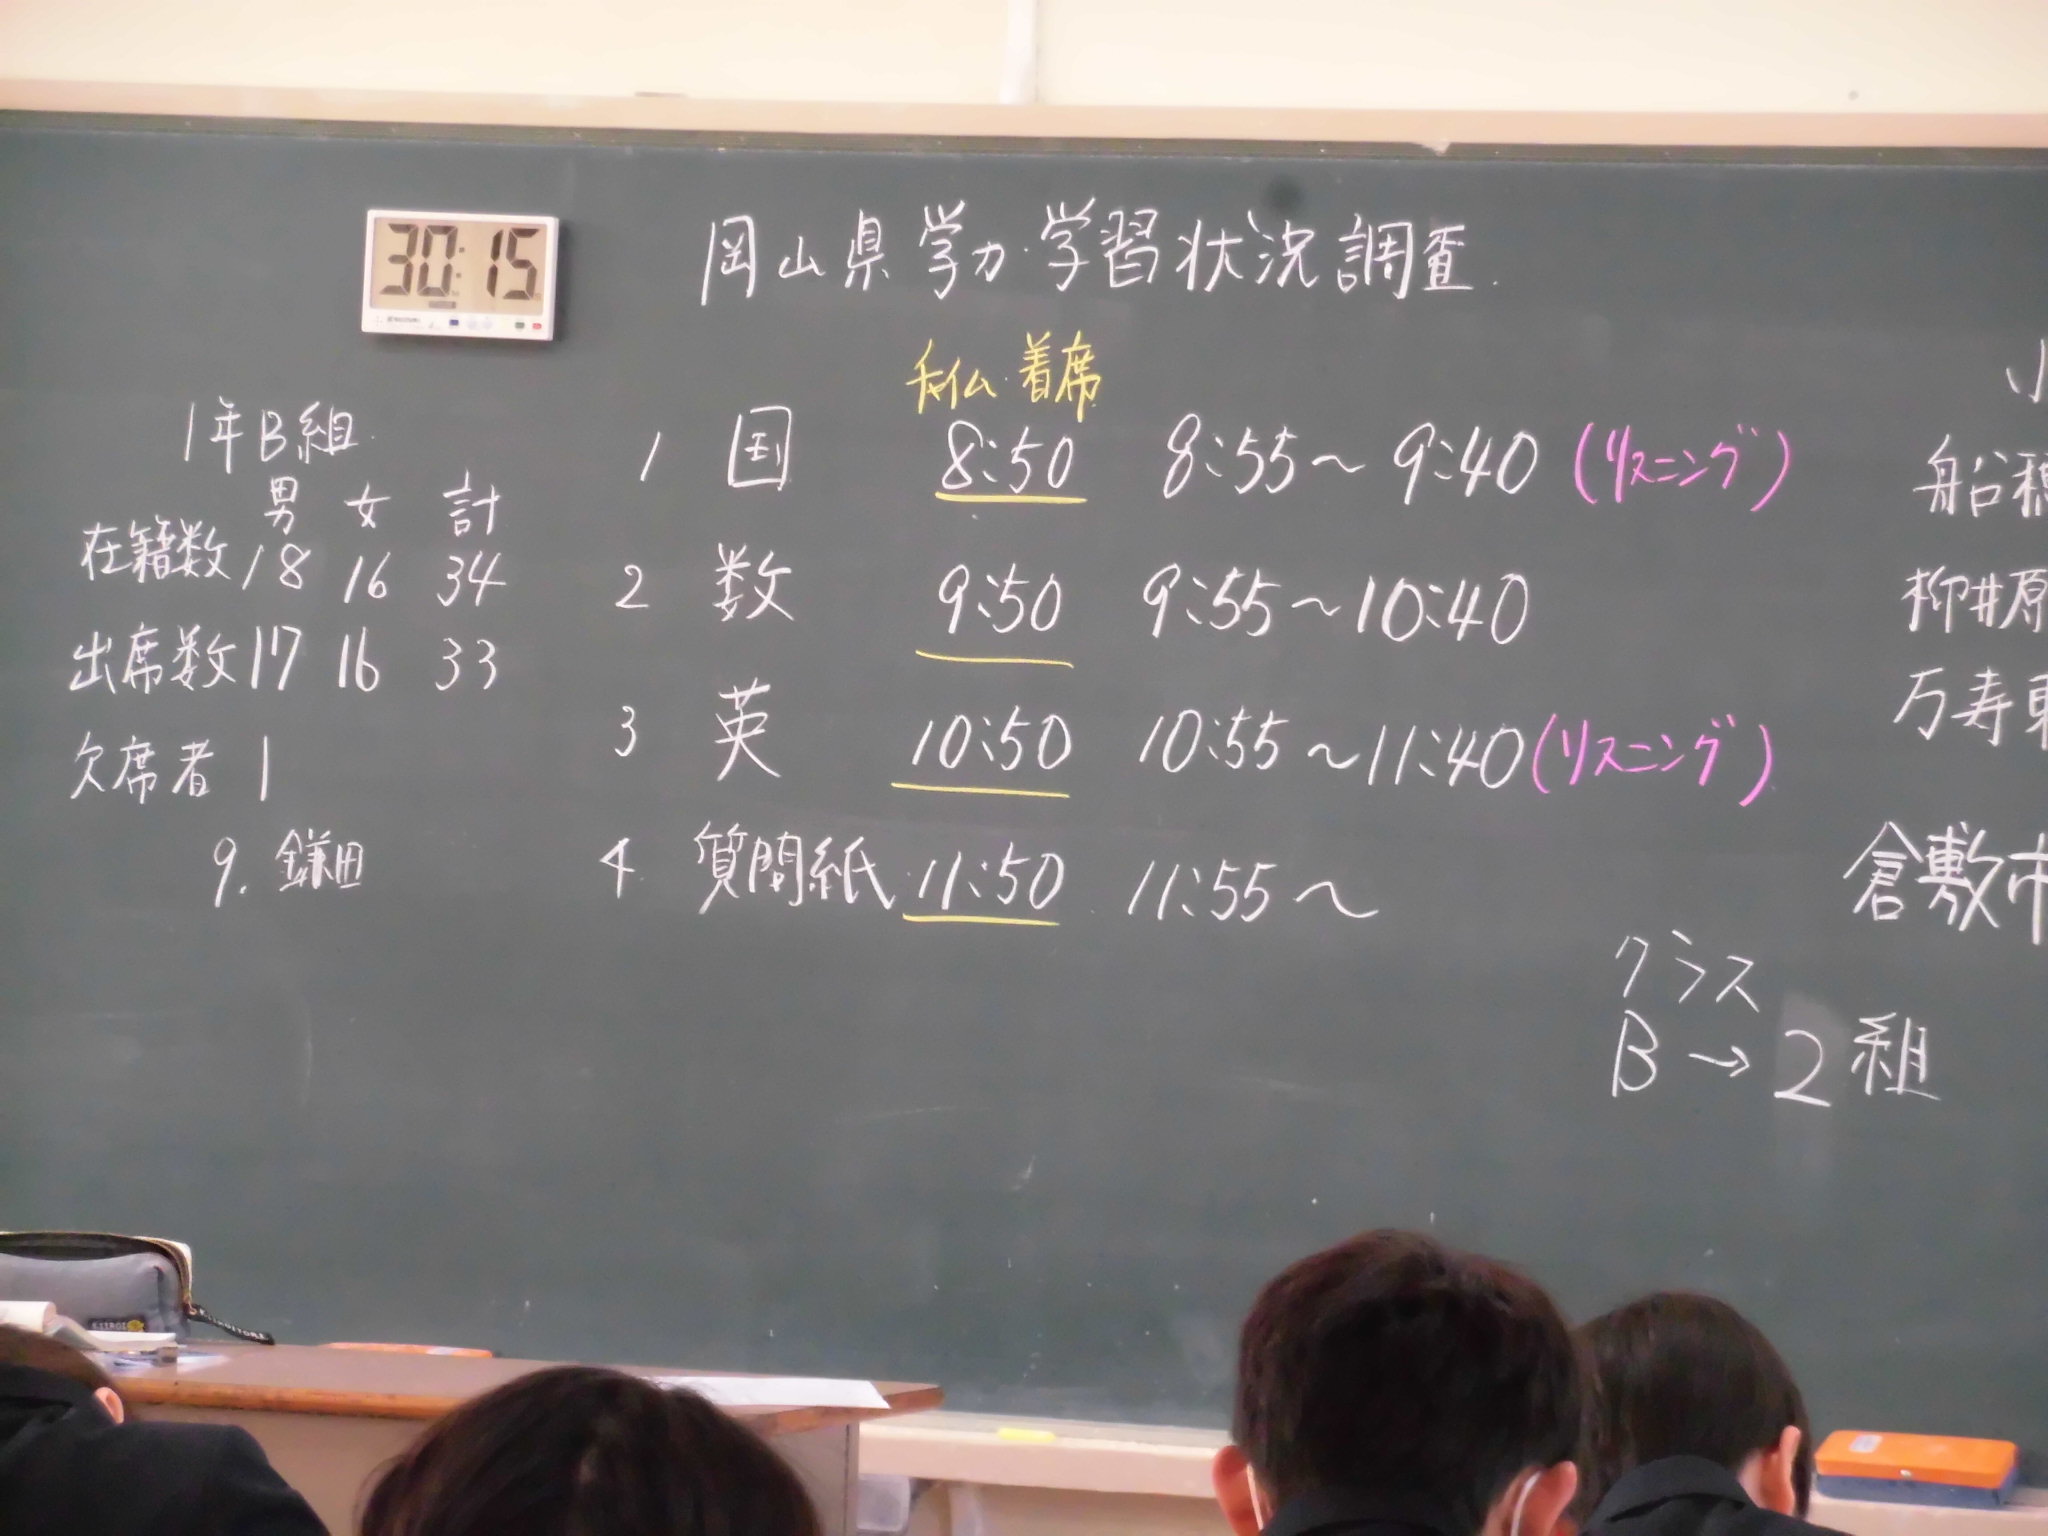 30:15
岡山県学力・学習状況調査.
チャイム 着席
1年B組.
男 女 計
在籍数 18 16 34
出席数 17 16 33
欠席者 1
9. 鎌田
1 国 8:50 8:55〜9:40 (リスニング)
2 数 9:50 9:55〜10:40
3 英 10:50 10:55〜11:40 (リスニング)
4 質問紙 11:50 11:55〜
小
船穂
柳井原
万寿東
倉敷市
クラス
B→2組